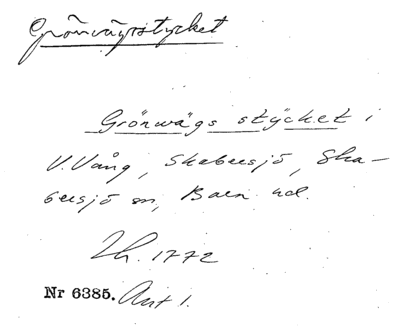 Grönvägsstycket
Grönwägs stÿcket i
V. Vång, Skabersjö, Ska-
bersjö sn, Bara hd.
Lh. 1772
Nr 6385. Akt 1.